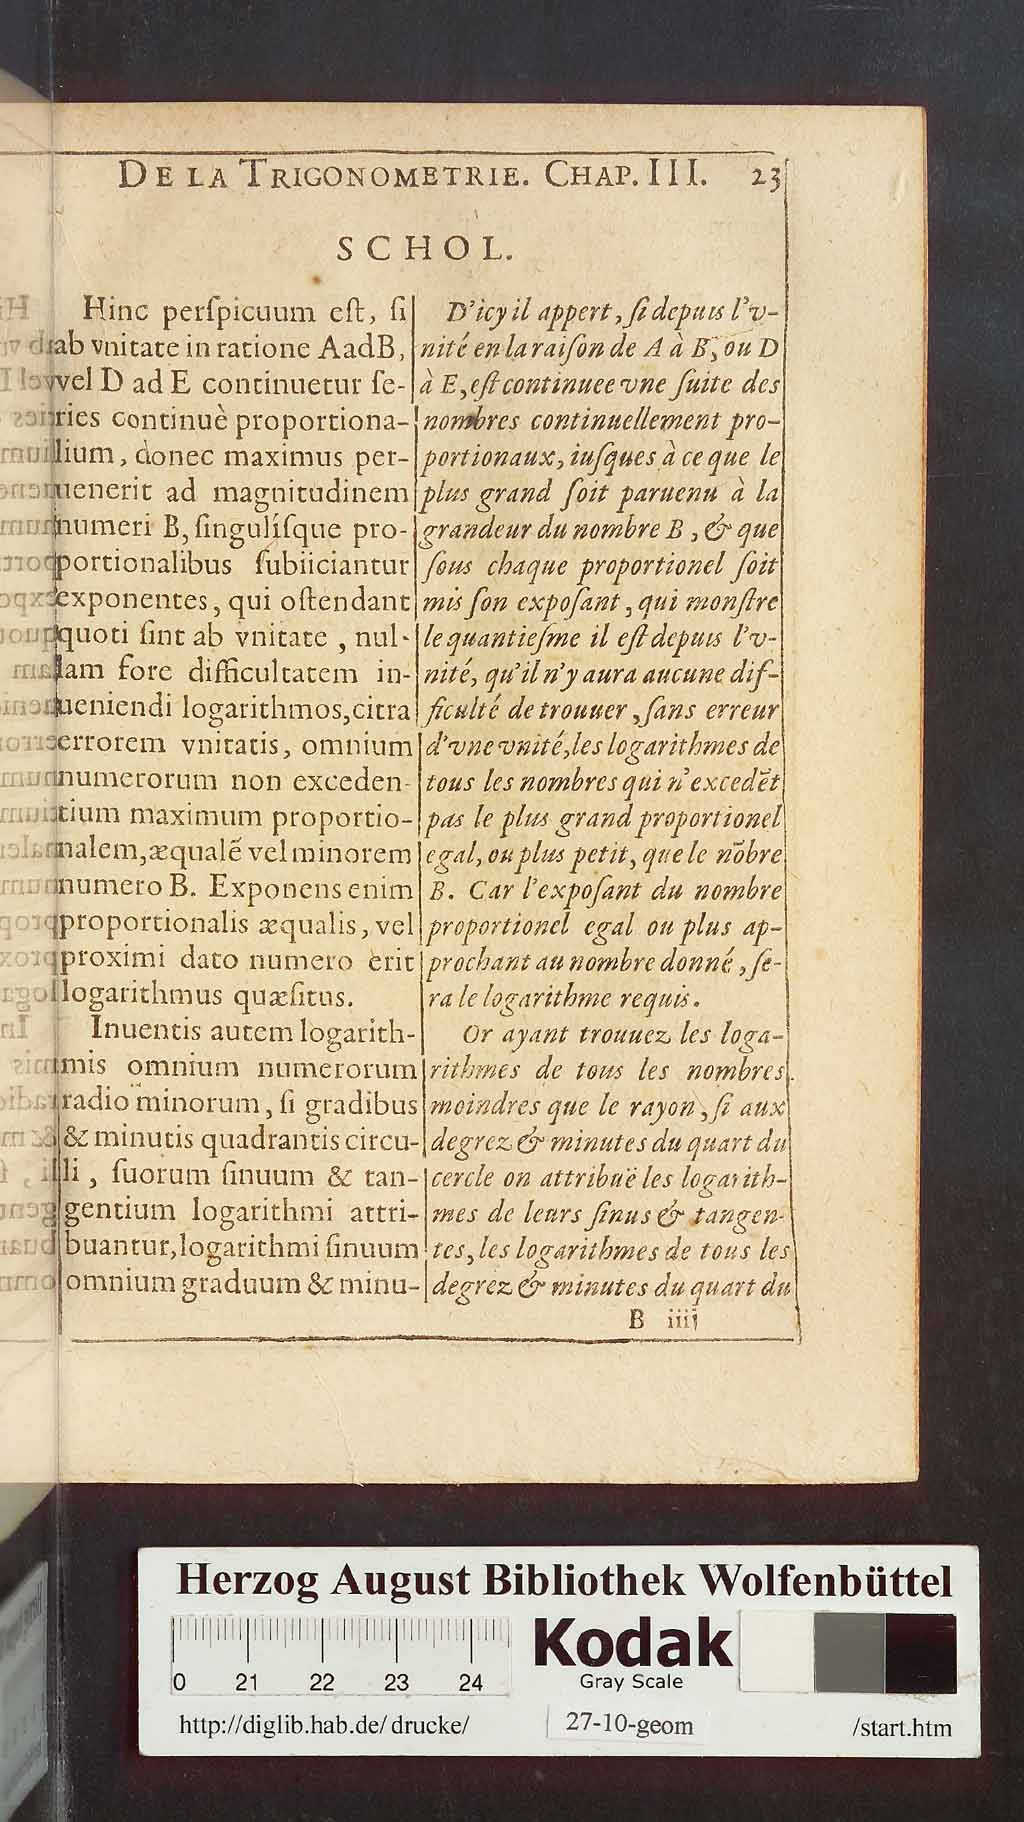 DE LA TRIGONOMETRIE. CHAP. III. 23
SCHOL.
Hinc perſpicuum eſt, ſi
ab vnitate in ratione A ad B,
vel D ad E continuetur ſe-
ries continuè proportiona-
lium, donec maximus per-
uenerit ad magnitudinem
numeri B, ſinguliſque pro-
portionalibus ſubiiciantur
exponentes, qui oſtendant
quoti ſint ab vnitate, nul-
lam fore difficultatem in-
ueniendi logarithmos, citra
errorem vnitatis, omnium
numerorum non exceden-
tium maximum proportio-
nalem, æqualẽ vel minorem
numero B. Exponens enim
proportionalis æqualis, vel
proximi dato numero erit
logarithmus quæſitus.
Inuentis autem logarith-
mis omnium numerorum
radio minorum, ſi gradibus
& minutis quadrantis circu-
li, ſuorum ſinuum & tan-
gentium logarithmi attri-
buantur, logarithmi ſinuum
omnium graduum & minu-
D'icy il appert, ſi depuis l'v-
nité en la raiſon de A à B, ou D
à E, eſt continuee vne ſuite des
nombres continuellement pro-
portionaux, iuſques à ce que le
plus grand ſoit paruenu à la
grandeur du nombre B, & que
ſous chaque proportionel ſoit
mis ſon expoſant, qui monſtre
le quantieſme il eſt depuis l'v-
nité, qu'il n'y aura aucune dif-
ficulté de trouuer, ſans erreur
d'vne vnité, les logarithmes de
tous les nombres qui n'excedẽt
pas le plus grand proportionel
egal, ou plus petit, que le nõbre
B. Car l'expoſant du nombre
proportionel egal ou plus ap-
prochant au nombre donné, ſe-
ra le logarithme requis.
Or ayant trouuez les loga-
rithmes de tous les nombres
moindres que le rayon, ſi aux
degrez & minutes du quart du
cercle on attribuë les logarith-
mes de leurs ſinus & tangen-
tes, les logarithmes de tous les
degrez & minutes du quart du
B iiij
Herzog August Bibliothek Wolfenbüttel
0 21 22 23 24
Kodak
Gray Scale
http://diglib.hab.de/drucke/ 27-10-geom /start.htm